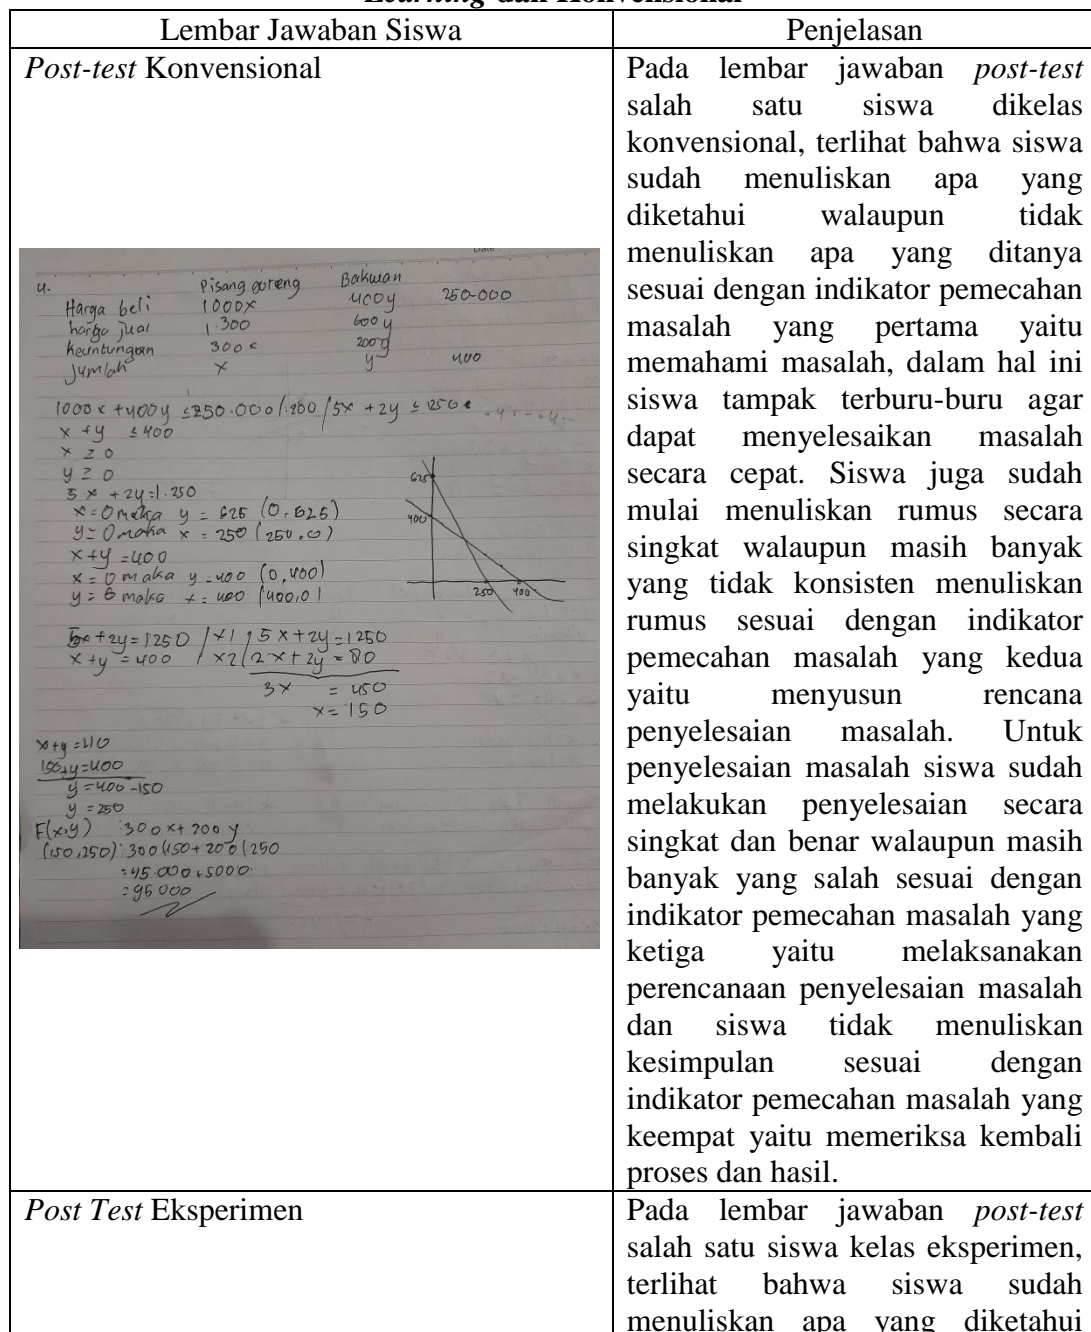 Learning dan Konvensional
Lembar Jawaban Siswa
Penjelasan
Post-test Konvensional
4.
Pisang goreng Bakwan
Harga beli 1000x 400y 250-000
harga jual 1.300 600 y
keuntungan 300 200
Jumlah x y 400
1000x + 400y ≤ 250.000 /:200 / 5x + 2y ≤ 1250
x + y ≤ 400
x ≥ 0
y ≥ 0
5 x + 2y = 1.250
x = 0 maka y = 625 (0,625)
y = 0 maka x = 250 (250,0)
x + y = 400
x = 0 maka y = 400 (0,400)
y = 0 maka x = 400 (400,0)
625
400
250 400
5x + 2y = 1250 / x1 / 5x + 2y = 1250
x + y = 400 / x2 / 2x + 2y = 80
3x = 450
x = 150
x + y = 400
150 + y = 400
y = 400 - 150
y = 250
F(x,y) : 300x + 200y
(150,250) : 300(150 + 200(250
= 45.000 + 5000
= 95000
Pada lembar jawaban post-test
salah satu siswa dikelas
konvensional, terlihat bahwa siswa
sudah menuliskan apa yang
diketahui walaupun tidak
menuliskan apa yang ditanya
sesuai dengan indikator pemecahan
masalah yang pertama yaitu
memahami masalah, dalam hal ini
siswa tampak terburu-buru agar
dapat menyelesaikan masalah
secara cepat. Siswa juga sudah
mulai menuliskan rumus secara
singkat walaupun masih banyak
yang tidak konsisten menuliskan
rumus sesuai dengan indikator
pemecahan masalah yang kedua
yaitu menyusun rencana
penyelesaian masalah. Untuk
penyelesaian masalah siswa sudah
melakukan penyelesaian secara
singkat dan benar walaupun masih
banyak yang salah sesuai dengan
indikator pemecahan masalah yang
ketiga yaitu melaksanakan
perencanaan penyelesaian masalah
dan siswa tidak menuliskan
kesimpulan sesuai dengan
indikator pemecahan masalah yang
keempat yaitu memeriksa kembali
proses dan hasil.
Post Test Eksperimen
Pada lembar jawaban post-test
salah satu siswa kelas eksperimen,
terlihat bahwa siswa sudah
menuliskan apa yang diketahui